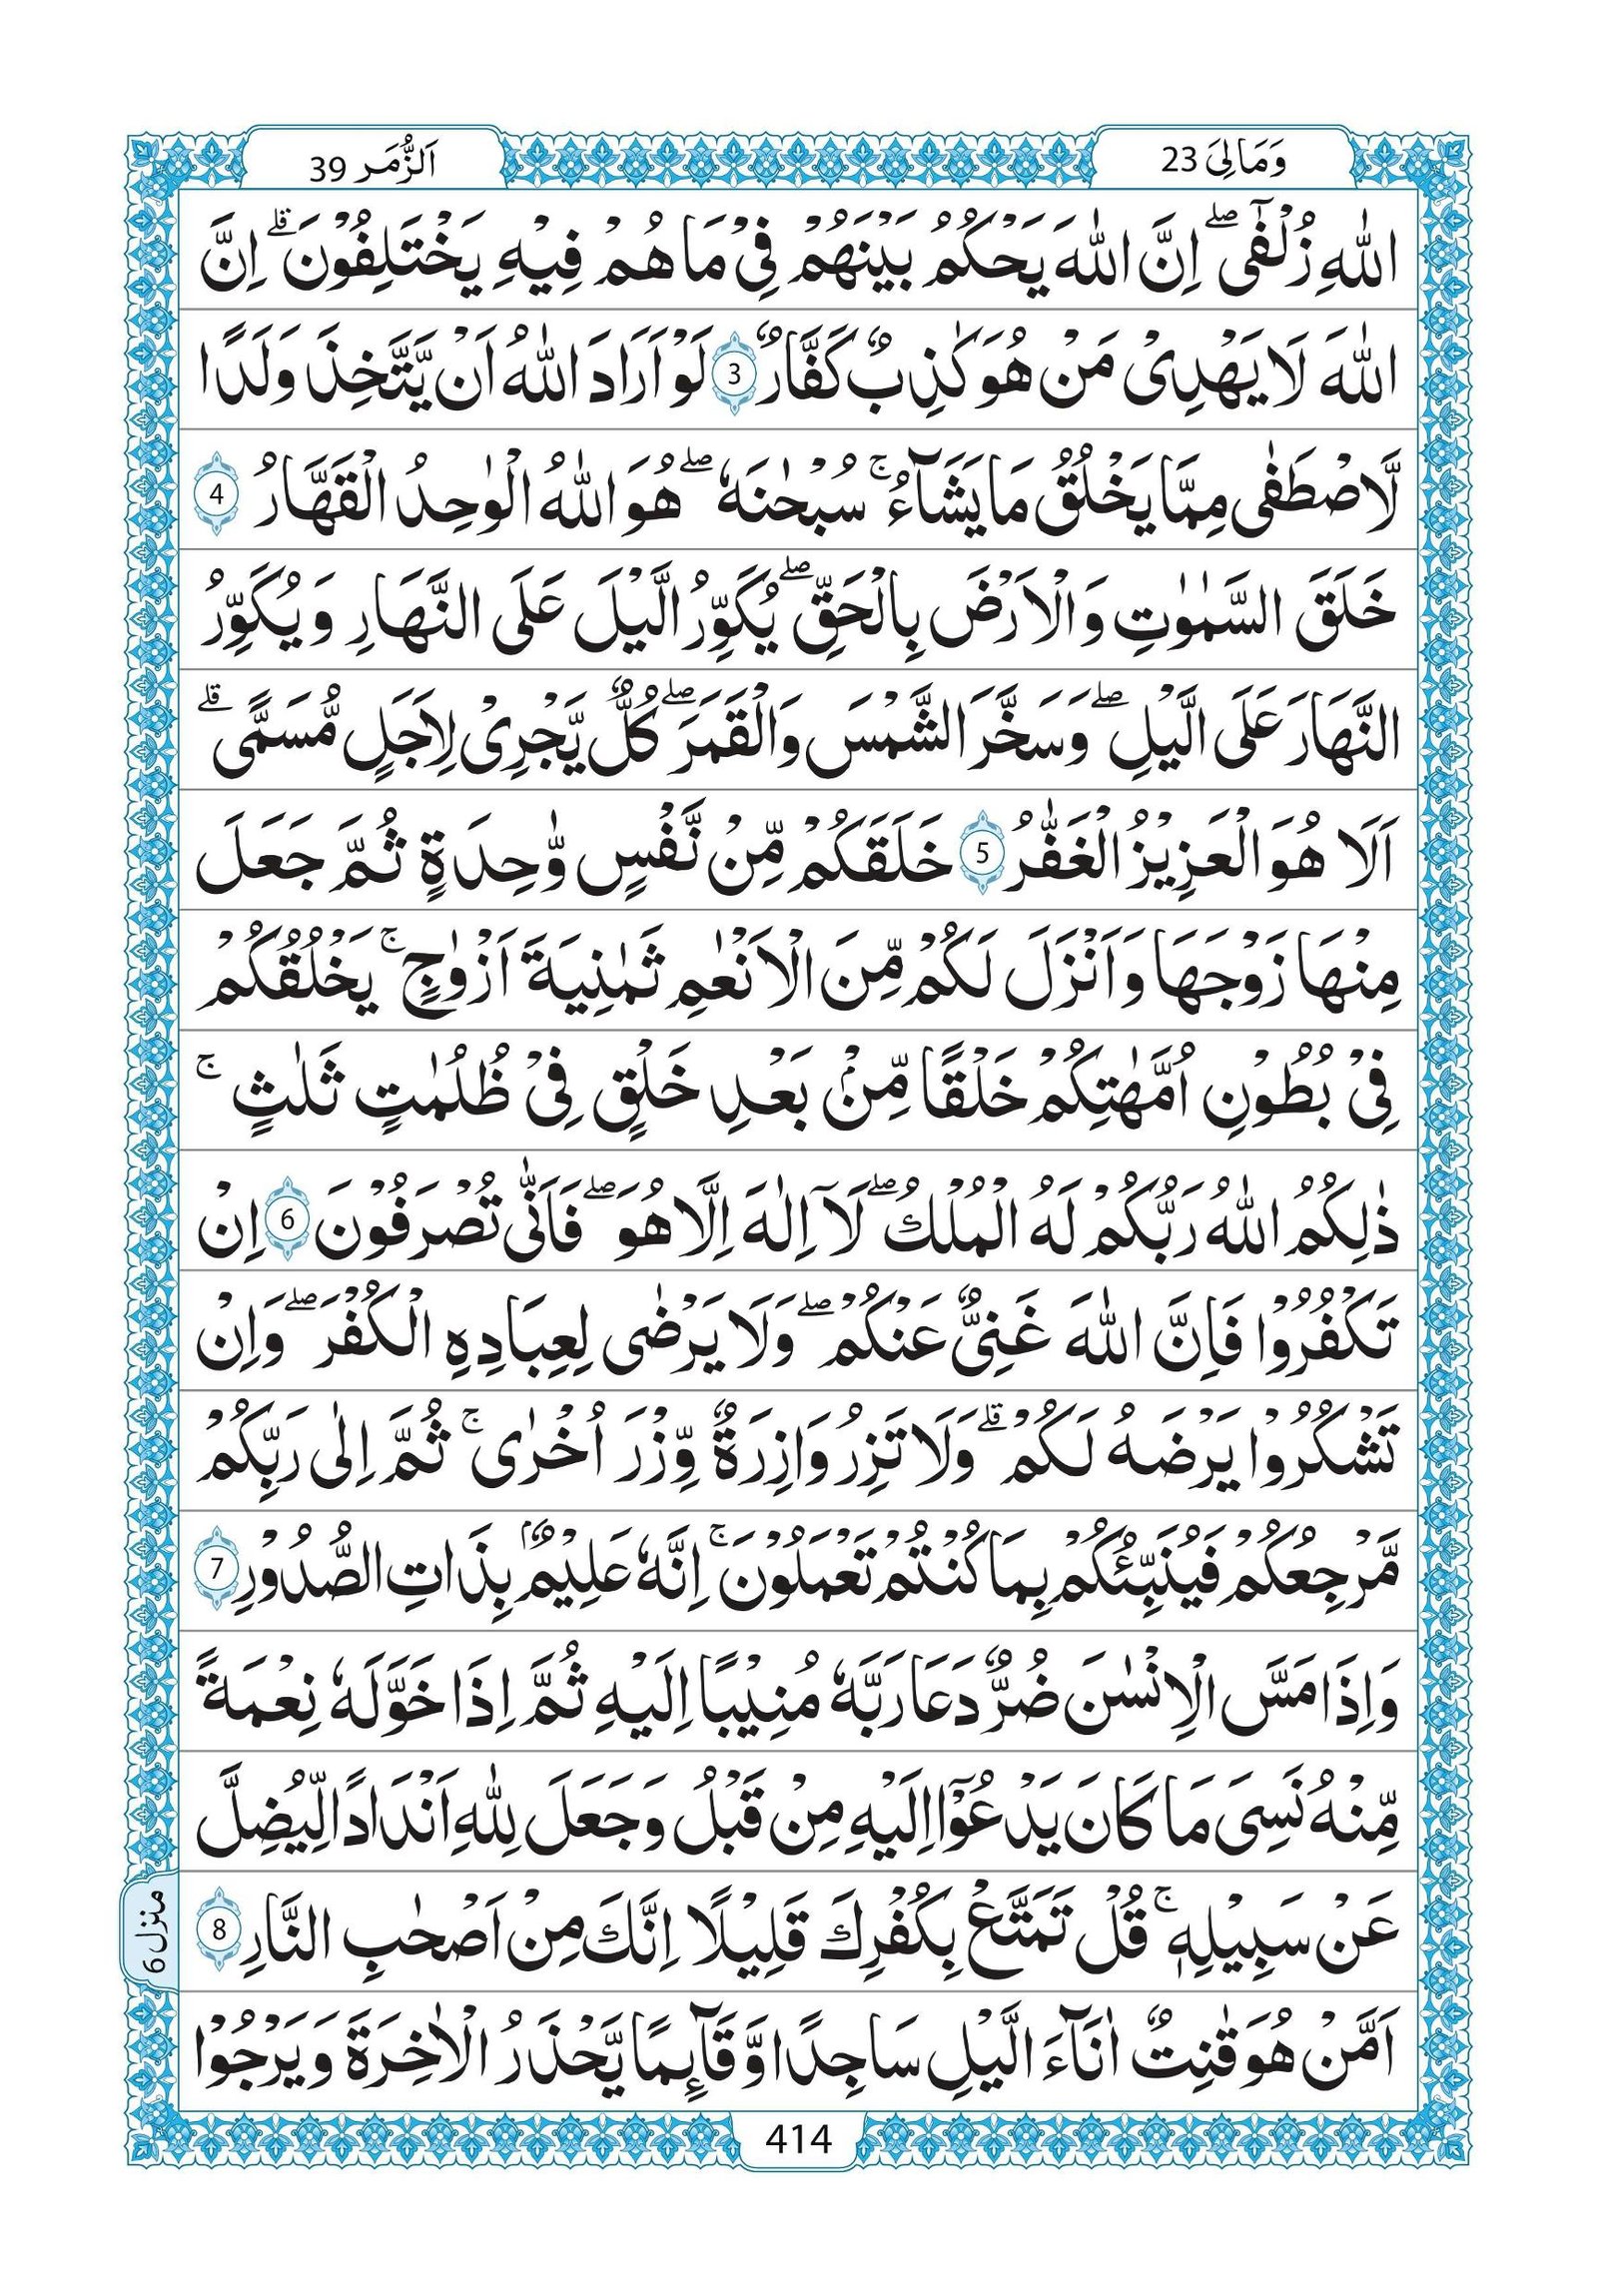 وَمَالِیَ 23
اَلزُّمَر 39
اللّٰهِ زُلْفٰۤىؕ اِنَّ اللّٰهَ يَحْكُمُ بَيْنَهُمْ فِىْ مَا هُمْ فِيْهِ يَخْتَلِفُوْنَ ۗ اِنَّ
اللّٰهَ لَا يَهْدِىْ مَنْ هُوَ كٰذِبٌ كَفَّارٌ 3 لَوْ اَرَادَ اللّٰهُ اَنْ يَّتَّخِذَ وَلَدًا
لَّاصْطَفٰى مِمَّا يَخْلُقُ مَا يَشَآءُ ۚ سُبْحٰنَهٗ ۖ هُوَ اللّٰهُ الْوٰحِدُ الْقَهَّارُ 4
خَلَقَ السَّمٰوٰتِ وَالْاَرْضَ بِالْحَقِّ ۖ يُكَوِّرُ الَّيْلَ عَلَى النَّهَارِ وَيُكَوِّرُ
النَّهَارَ عَلَى الَّيْلِ ۖ وَسَخَّرَ الشَّمْسَ وَالْقَمَرَ ۖ كُلٌّ يَّجْرِىْ لِاَجَلٍ مُّسَمًّى ۗ
اَلَا هُوَ الْعَزِيْزُ الْغَفّٰرُ 5 خَلَقَكُمْ مِّنْ نَّفْسٍ وّٰحِدَةٍ ثُمَّ جَعَلَ
مِنْهَا زَوْجَهَا وَاَنْزَلَ لَكُمْ مِّنَ الْاَنْعٰمِ ثَمٰنِيَةَ اَزْوٰجٍ ۚ يَخْلُقُكُمْ
فِىْ بُطُوْنِ اُمَّهٰتِكُمْ خَلْقًا مِّنْۢ بَعْدِ خَلْقٍ فِىْ ظُلُمٰتٍ ثَلٰثٍ ۚ
ذٰلِكُمُ اللّٰهُ رَبُّكُمْ لَهُ الْمُلْكُ ۖ لَآ اِلٰهَ اِلَّا هُوَ ۖ فَاَنّٰى تُصْرَفُوْنَ 6 اِنْ
تَكْفُرُوْا فَاِنَّ اللّٰهَ غَنِىٌّ عَنْكُمْ ۖ وَلَا يَرْضٰى لِعِبَادِهِ الْكُفْرَ ۖ وَاِنْ
تَشْكُرُوْا يَرْضَهُ لَكُمْ ۗ وَلَا تَزِرُ وَازِرَةٌ وِّزْرَ اُخْرٰى ۚ ثُمَّ اِلٰى رَبِّكُمْ
مَّرْجِعُكُمْ فَيُنَبِّئُكُمْ بِمَا كُنْتُمْ تَعْمَلُوْنَ ۚ اِنَّهٗ عَلِيْمٌۢ بِذَاتِ الصُّدُوْرِ 7
وَاِذَا مَسَّ الْاِنْسٰنَ ضُرٌّ دَعَا رَبَّهٗ مُنِيْبًا اِلَيْهِ ثُمَّ اِذَا خَوَّلَهٗ نِعْمَةً
مِّنْهُ نَسِىَ مَا كَانَ يَدْعُوْۤا اِلَيْهِ مِنْ قَبْلُ وَجَعَلَ لِلّٰهِ اَنْدَادًا لِّيُضِلَّ
عَنْ سَبِيْلِهٖ ۚ قُلْ تَمَتَّعْ بِكُفْرِكَ قَلِيْلًا اِنَّكَ مِنْ اَصْحٰبِ النَّارِ 8
اَمَّنْ هُوَ قٰنِتٌ اٰنَآءَ الَّيْلِ سَاجِدًا وَّقَآىِٕمًا يَّحْذَرُ الْاٰخِرَةَ وَيَرْجُوْا
منزل 6
414